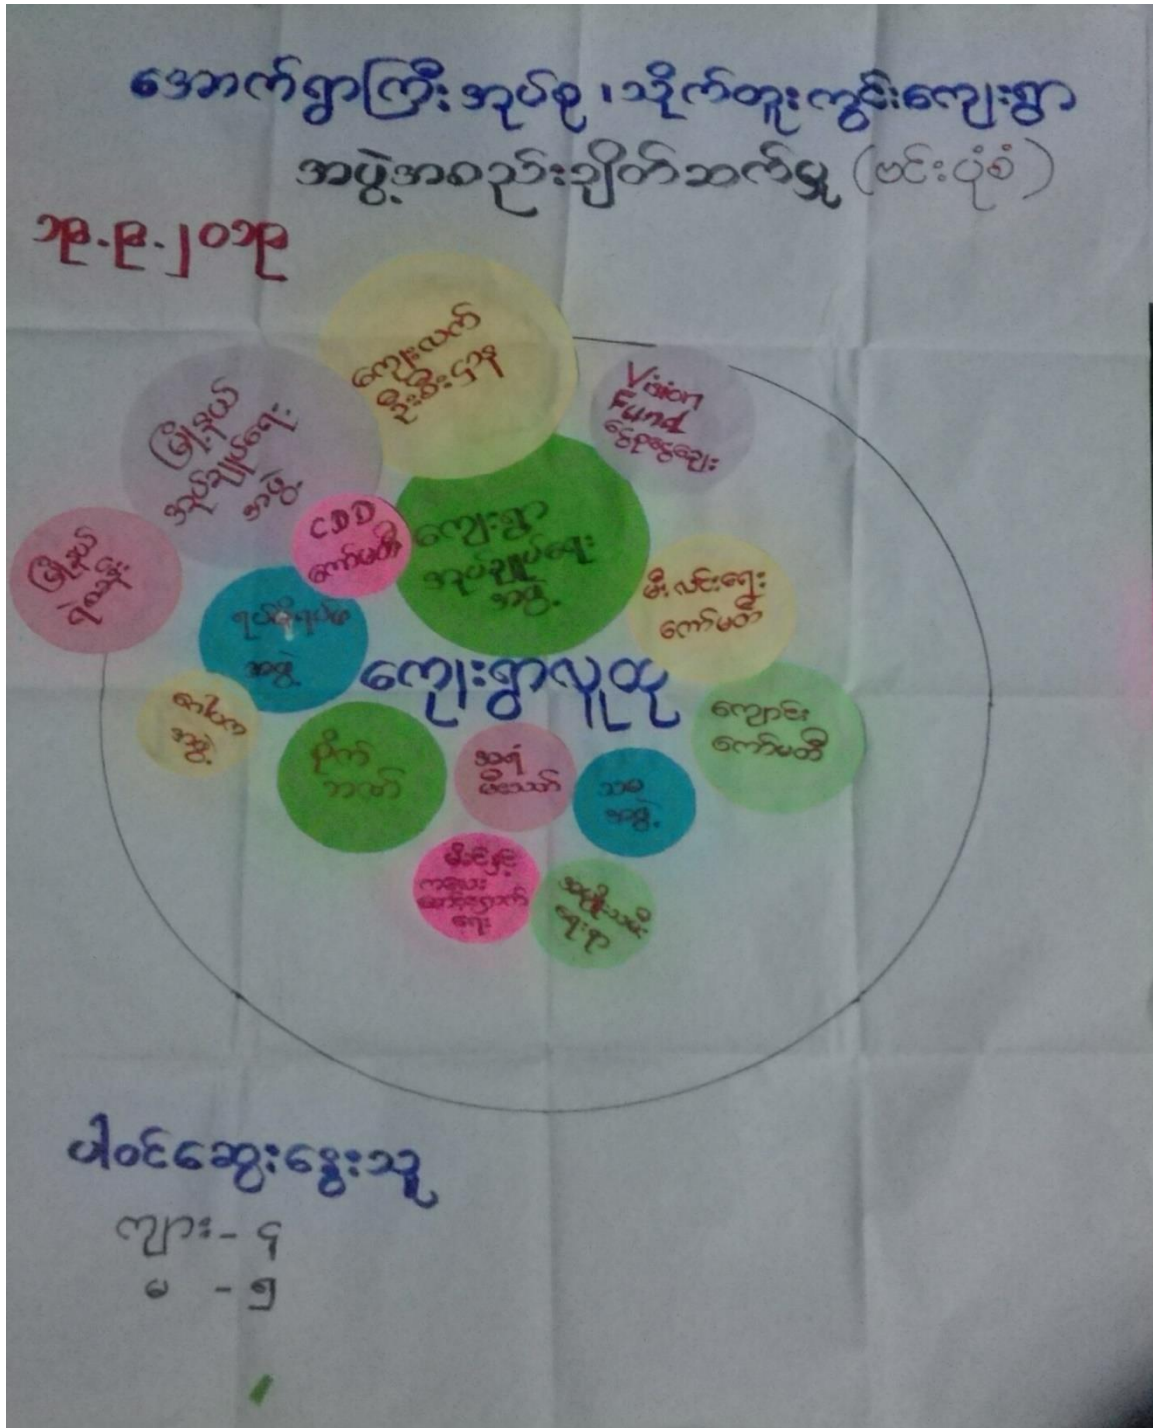 အောက်ရွာကြီးအုပ်စု၊သိုက်တူးကွင်းကျေးရွာ
အဖွဲ့အစည်းချိတ်ဆက်မှု (ဗင်းပုံစံ)
၁၉.၉.၂၀၁၉
ကျေးလက်
ဦးစီးဌာန
Vision
Fund
ငွေစုငွေချေး
မြို့နယ်
အုပ်ချုပ်ရေး
အဖွဲ့
CDD
ကော်မတီ
ကျေးရွာ
အုပ်ချုပ်ရေး
အဖွဲ့
မြို့နယ်
ရဲစခန်း
မီးလင်းရေး
ကော်မတီ
ရပ်မိရပ်ဖ
အဖွဲ့
ကျေးရွာလူထု
ကျောင်း
ကော်မတီ
ဂေါပက
အဖွဲ့
စိုက်
ဘဏ်
အရံ
မီးသတ်
သမ
အဖွဲ့
မိခင်နှင့်
ကလေး
စောင့်ရှောက်
ရေး
အမျိုးသမီး
ရေးရာ
ပါဝင်ဆွေးနွေးသူ
ကျား - ၄
မ - ၅